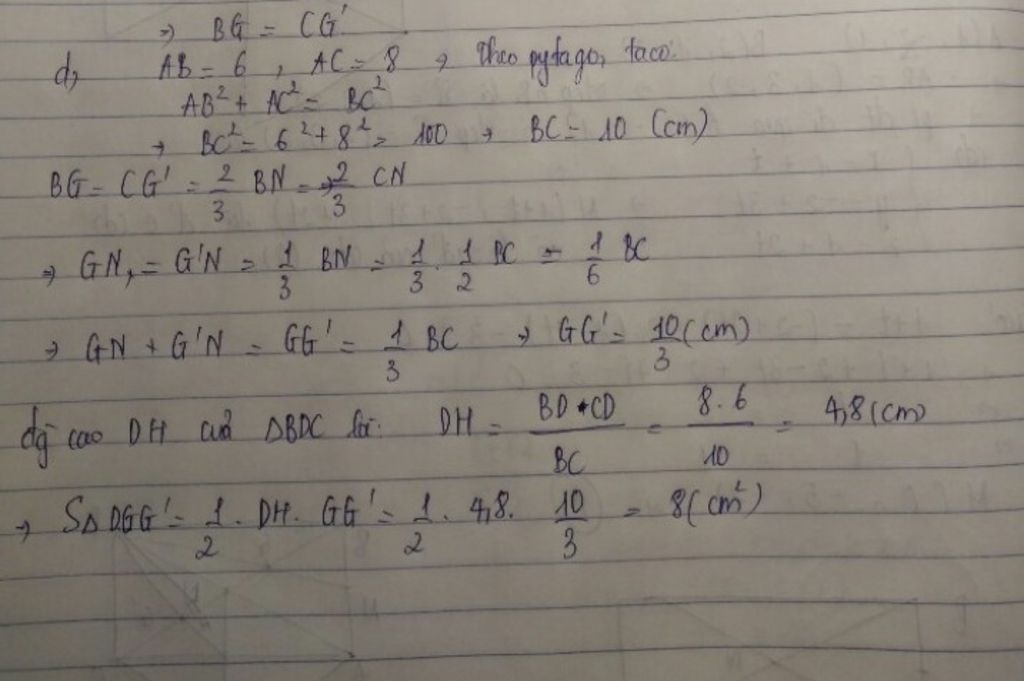 => BG = CG'
d, AB = 6, AC = 8 → theo pytago, ta có:
AB² + AC² = BC²
→ BC² = 6² + 8² = 100 → BC = 10 (cm)
BG = CG' = 2/3 BN = 2/3 CN
=> GN, = G'N = 1/3 BN = 1/3 . 1/2 BC = 1/6 BC
→ GN + G'N = GG' = 1/3 BC → GG' = 10/3 (cm)
đg cao DH của ΔBDC là: DH = BD * CD / BC = 8 . 6 / 10 = 4,8 (cm)
→ SΔ DGG' = 1/2 . DH . GG' = 1/2 . 4,8 . 10/3 = 8 (cm²)